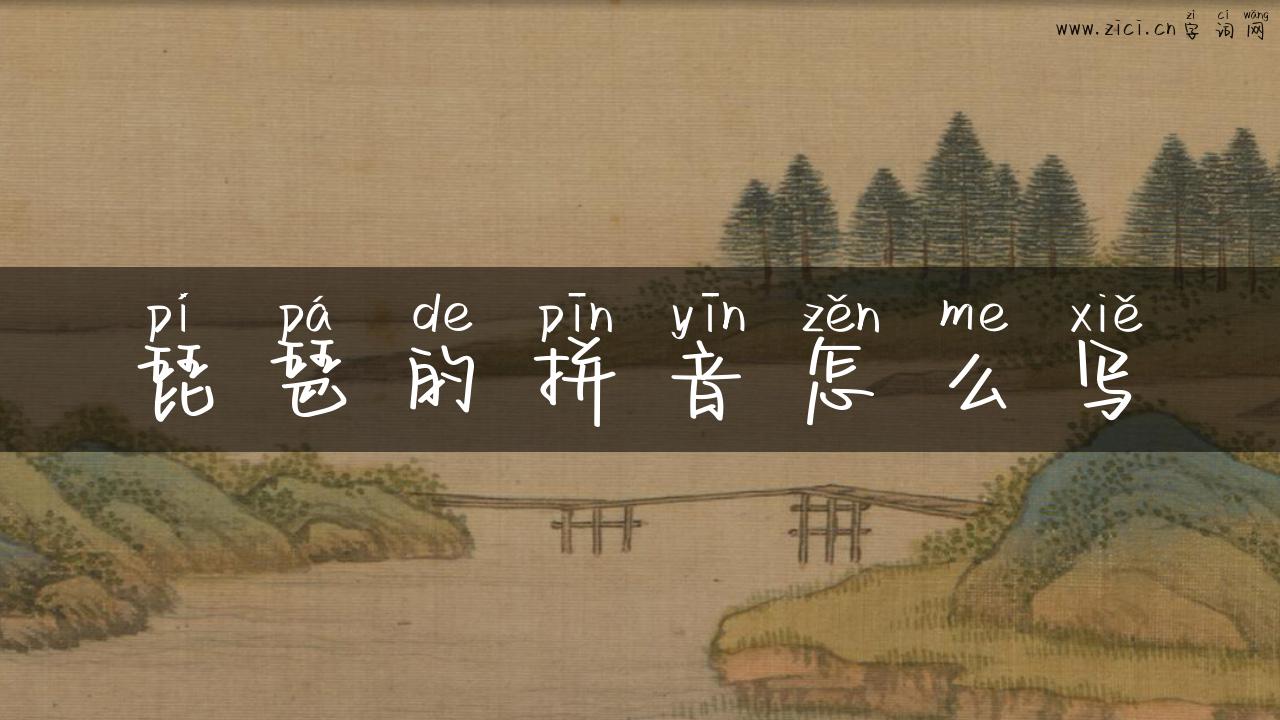 zì cí wǎng
www.zici.cn 字词网
pí pá de pīn yīn zěn me xiě
琵琶的拼音怎么写